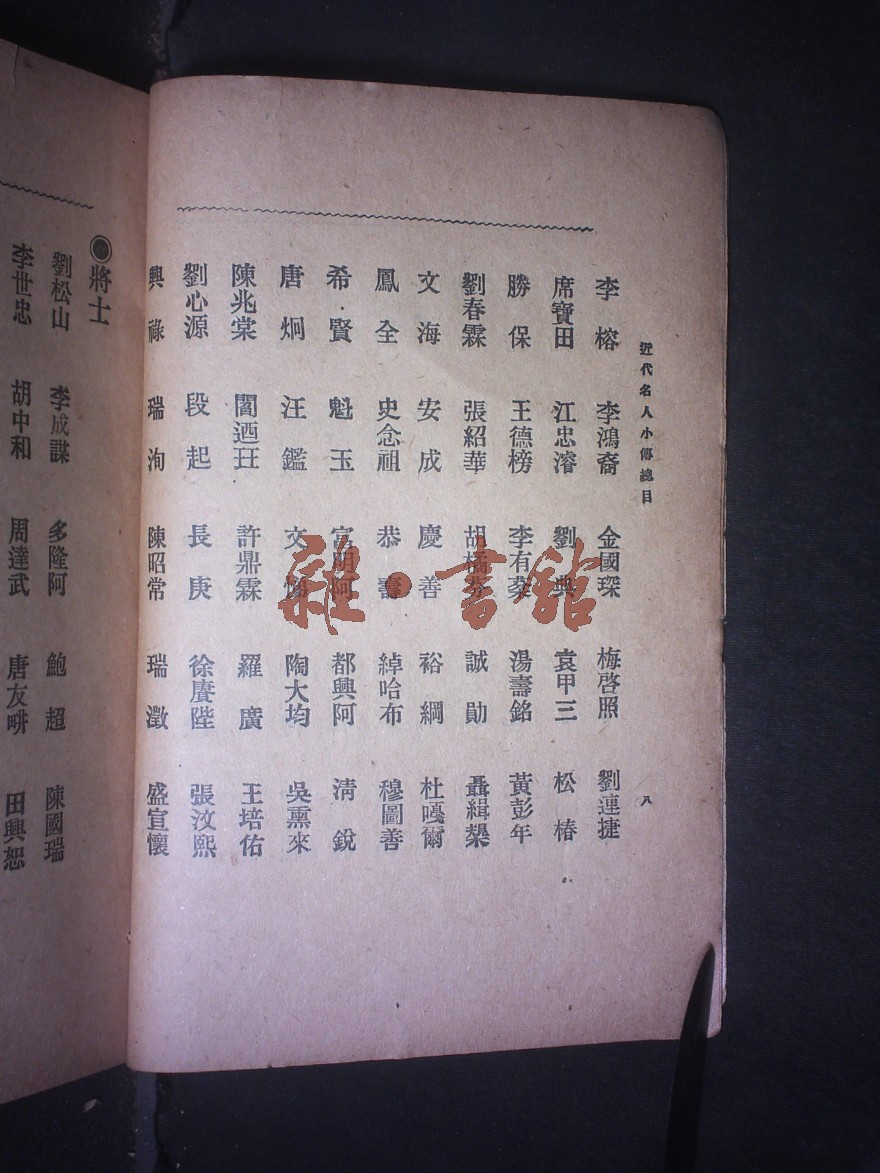 近代名人小傳總目
八
李榕 李鴻裔 金國琛 梅啓照 劉連捷
席寶田 江忠濬 劉典 袁甲三 松椿
勝保 王德榜 李有棻 湯壽銘 黃彭年
劉春霖 張紹華 胡橘棻 誠勛 聶緝槼
文海 安成 慶善 裕綱 杜嘎爾
鳳全 史念祖 恭壽 綽哈布 穆圖善
希賢 魁玉 富明阿 都興阿 清銳
唐炯 汪鑑 文悌 陶大均 吳熏來
陳兆棠 閻迺玨 許鼎霖 羅廣 王培佑
劉心源 段起 長庚 徐賡陛 張汶熙
興祿 瑞洵 陳昭常 瑞澂 盛宣懷
◉將士
劉松山 李成謀 多隆阿 鮑超 陳國瑞
李世忠 胡中和 周達武 唐友畊 田興恕
雜·書館